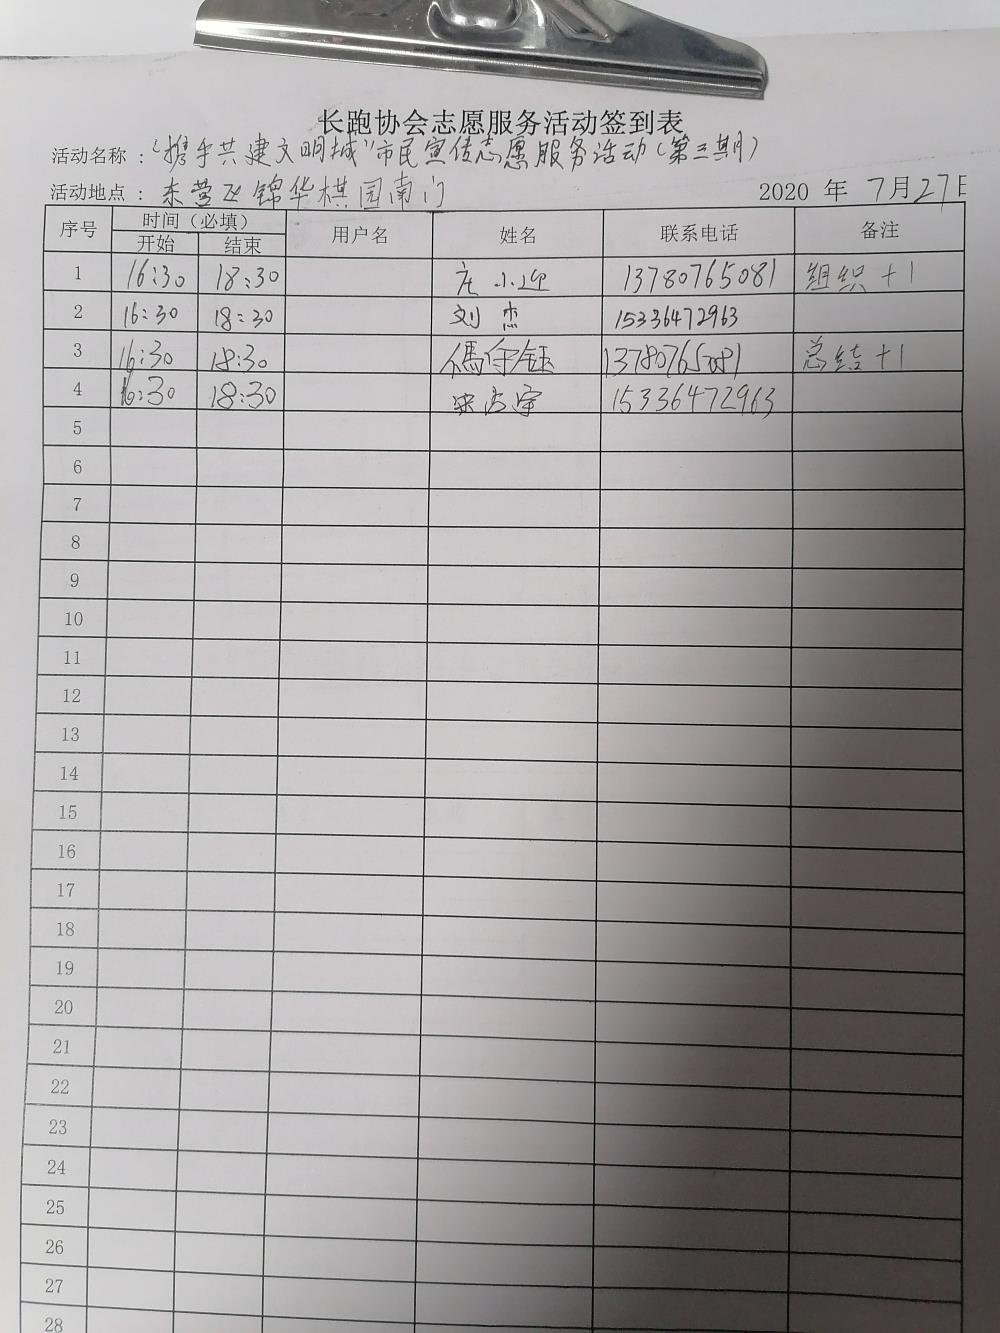 长跑协会志愿服务活动签到表
活动名称：“携手共建文明城”市民宣传志愿服务活动（第三期）
活动地点：东营区锦华棋园南门 2020 年 7月27日
序号 时间（必填） 用户名 姓名 联系电话 备注
开始 结束
1 16:30 18:30 庄小迎 13780765081 组织+1
2 16:30 18:30 刘杰 15336472963
3 16:30 18:30 13780765081 总结+1
4 16:30 18:30 15336472963
5
6
7
8
9
10
11
12
13
14
15
16
17
18
19
20
21
22
23
24
25
26
27
28